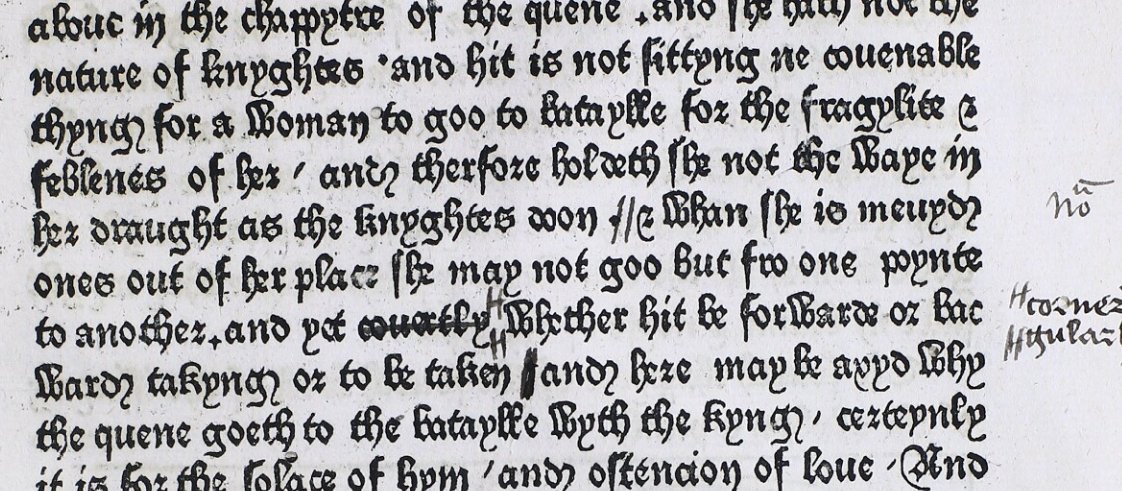 aboue in the chappytre of the quene . and she hath not the
nature of knyghtes · and hit is not sittyng ne couenable
thyng for a woman to goo to bataylle for the fragylite ⁊
feblenes of her / and therfore holdeth she not the waye in
her draught as the knyghtes doon // ⁊ whan she is meuyd
ones out of her place she may not goo but fro one poynte
to another . and yet couertly whether hit be forwarde or bac
ward takyng or to be taken / and here may be axyd why
the quene goeth to the bataylle wyth the kyng · certeynly
it is for the solace of hym / and ostencion of loue · And
nō
corner
gular